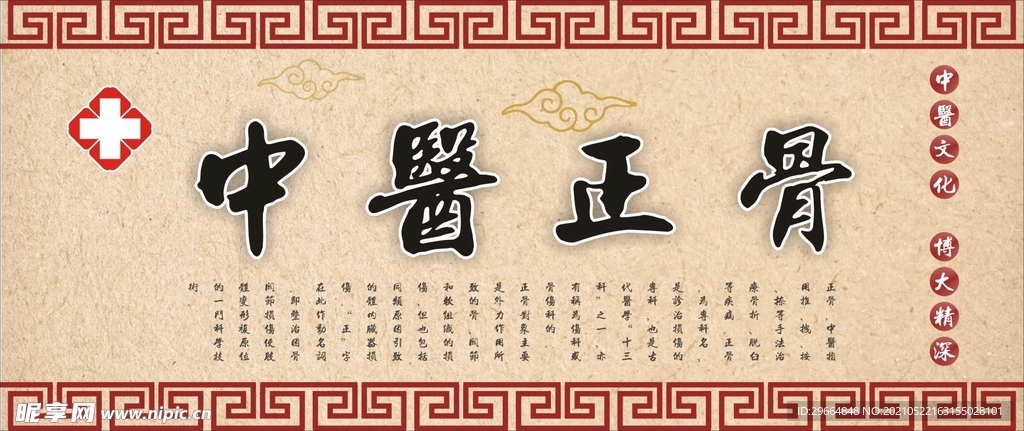 中醫正骨
中醫文化 博大精深
正骨,中醫指
用推、拽、按
、捺等手法治
療骨折、脫臼
等疾病。正骨
,為專科名,
是診治損傷的
專科,也是古
代醫學“十三
科”之一,亦
有稱為傷科或
骨傷科的。
正骨對象主要
是外力作用所
致的骨、關節
和軟組織的損
傷,但也包括
同類原因引致
的體內臟器損
傷。“正”字
在此作動名詞
,即整治因骨
關節損傷使肢
體變形複原位
的一門科學技
術。
昵享网 www.nipic.cn
ID:29664848 NO:20210522163155028101